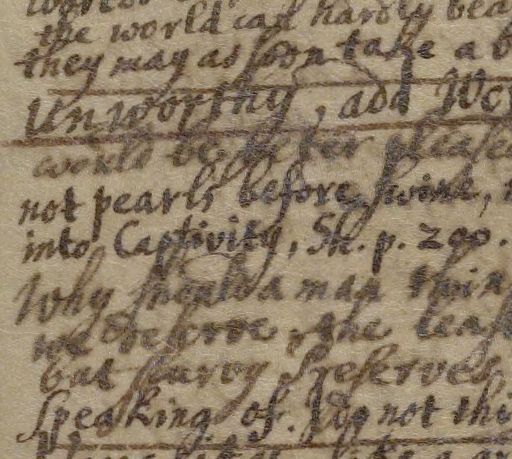 the world can hardly bea
they may as soon take a b
Unworthy, add Wo
would be better please
not pearls before swine,
into Captivity, Sh. p. 200.
Why should a man thin
we deserve, the leas
but scurvy preserves
speaking of. Do not thi